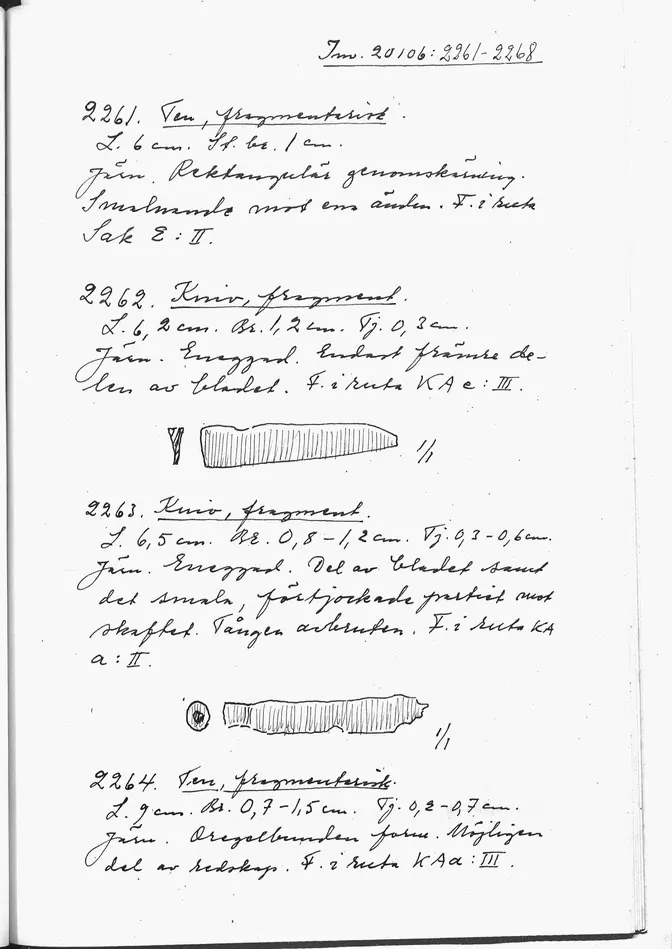 Inv. 20106:2261-2268
2261. Ten, fragmentarisk.
L. 6 cm. St. br. 1 cm.
Järn. Rektangulär genomskärning.
Smalnande mot ena änden. F. i ruta
Sak E : II.
2262. Kniv, fragment.
L. 6,2 cm. Br. 1,2 cm. Tj. 0,3 cm.
Järn. Eneggad. Endast främre de-
len av bladet. F. i ruta KA e : III.
1/1
2263. Kniv, fragment.
L. 6,5 cm. Br. 0,8-1,2 cm. Tj. 0,3-0,6 cm.
Järn. Eneggad. Del av bladet samt
det smala, förtjockade partiet mot
skaftet. Tången avbruten. F. i ruta KA
a : II.
1/1
2264. Ten, fragmentarisk.
L. 9 cm. Br. 0,7-1,5 cm. Tj. 0,2-0,7 cm.
Järn. Oregelbunden form. Möjligen
del av redskap. F. i ruta KAa : III.